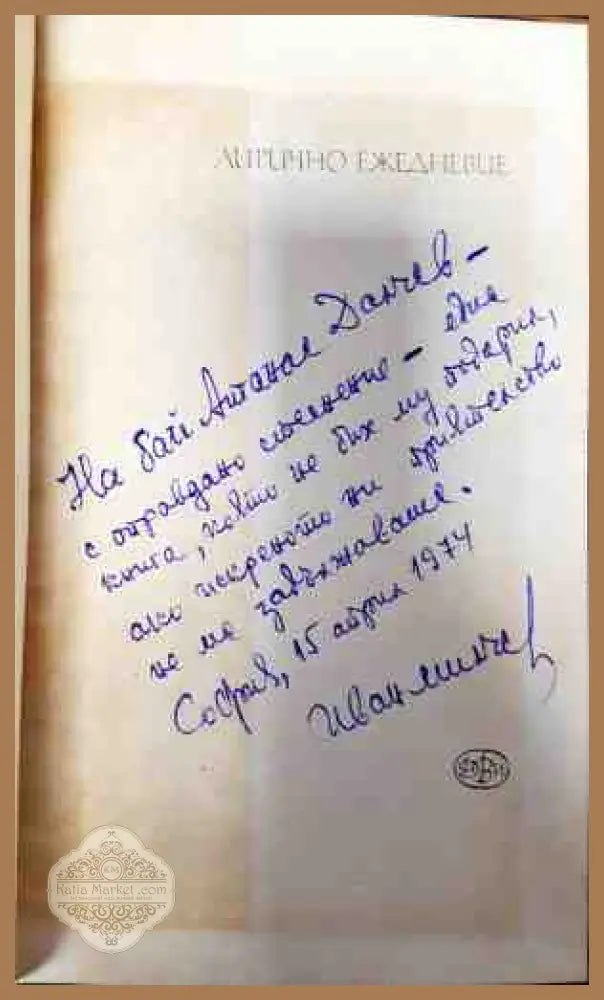 ЛИРИЧНО ЕЖЕДНЕВИЕ
На бай Атанас Данчев –
с оправдано стеснение – една
книга, която не бих му подарил,
ако искреното ни приятелство
не ме задължаваше.
София, 15 април 1974
Иван Минчев
KM
Katia Market.com